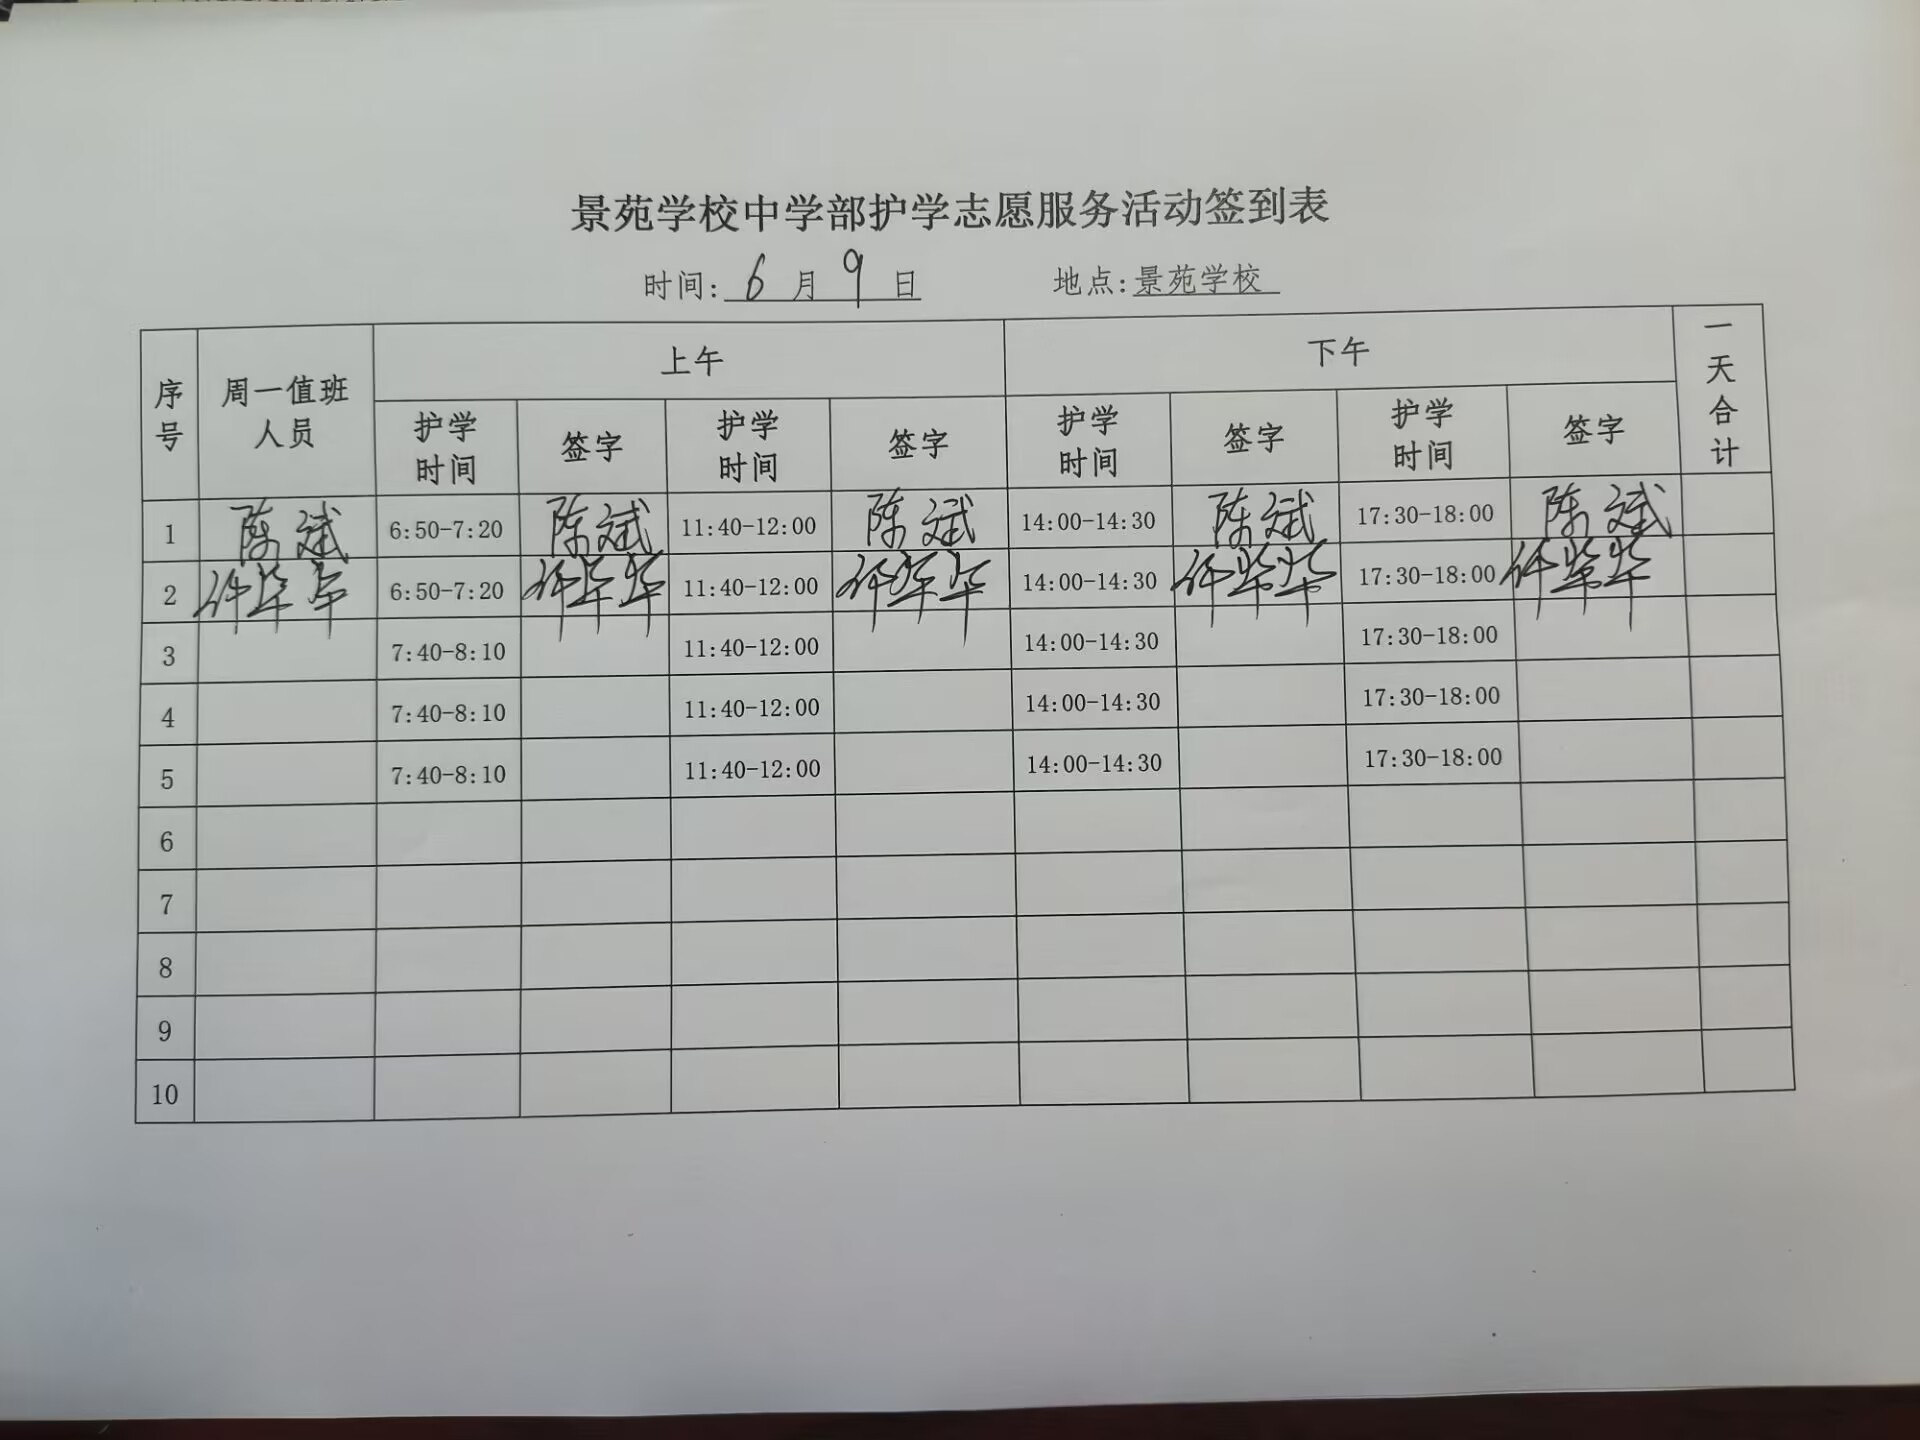 景苑学校中学部护学志愿服务活动签到表
时间: 6 月 9 日 地点:景苑学校
序号 周一值班人员 上午 下午 一天合计
护学时间 签字 护学时间 签字 护学时间 签字 护学时间 签字
1 陈斌 6:50-7:20 陈斌 11:40-12:00 陈斌 14:00-14:30 陈斌 17:30-18:00 陈斌
2 6:50-7:20 11:40-12:00 14:00-14:30 17:30-18:00
3 7:40-8:10 11:40-12:00 14:00-14:30 17:30-18:00
4 7:40-8:10 11:40-12:00 14:00-14:30 17:30-18:00
5 7:40-8:10 11:40-12:00 14:00-14:30 17:30-18:00
6
7
8
9
10